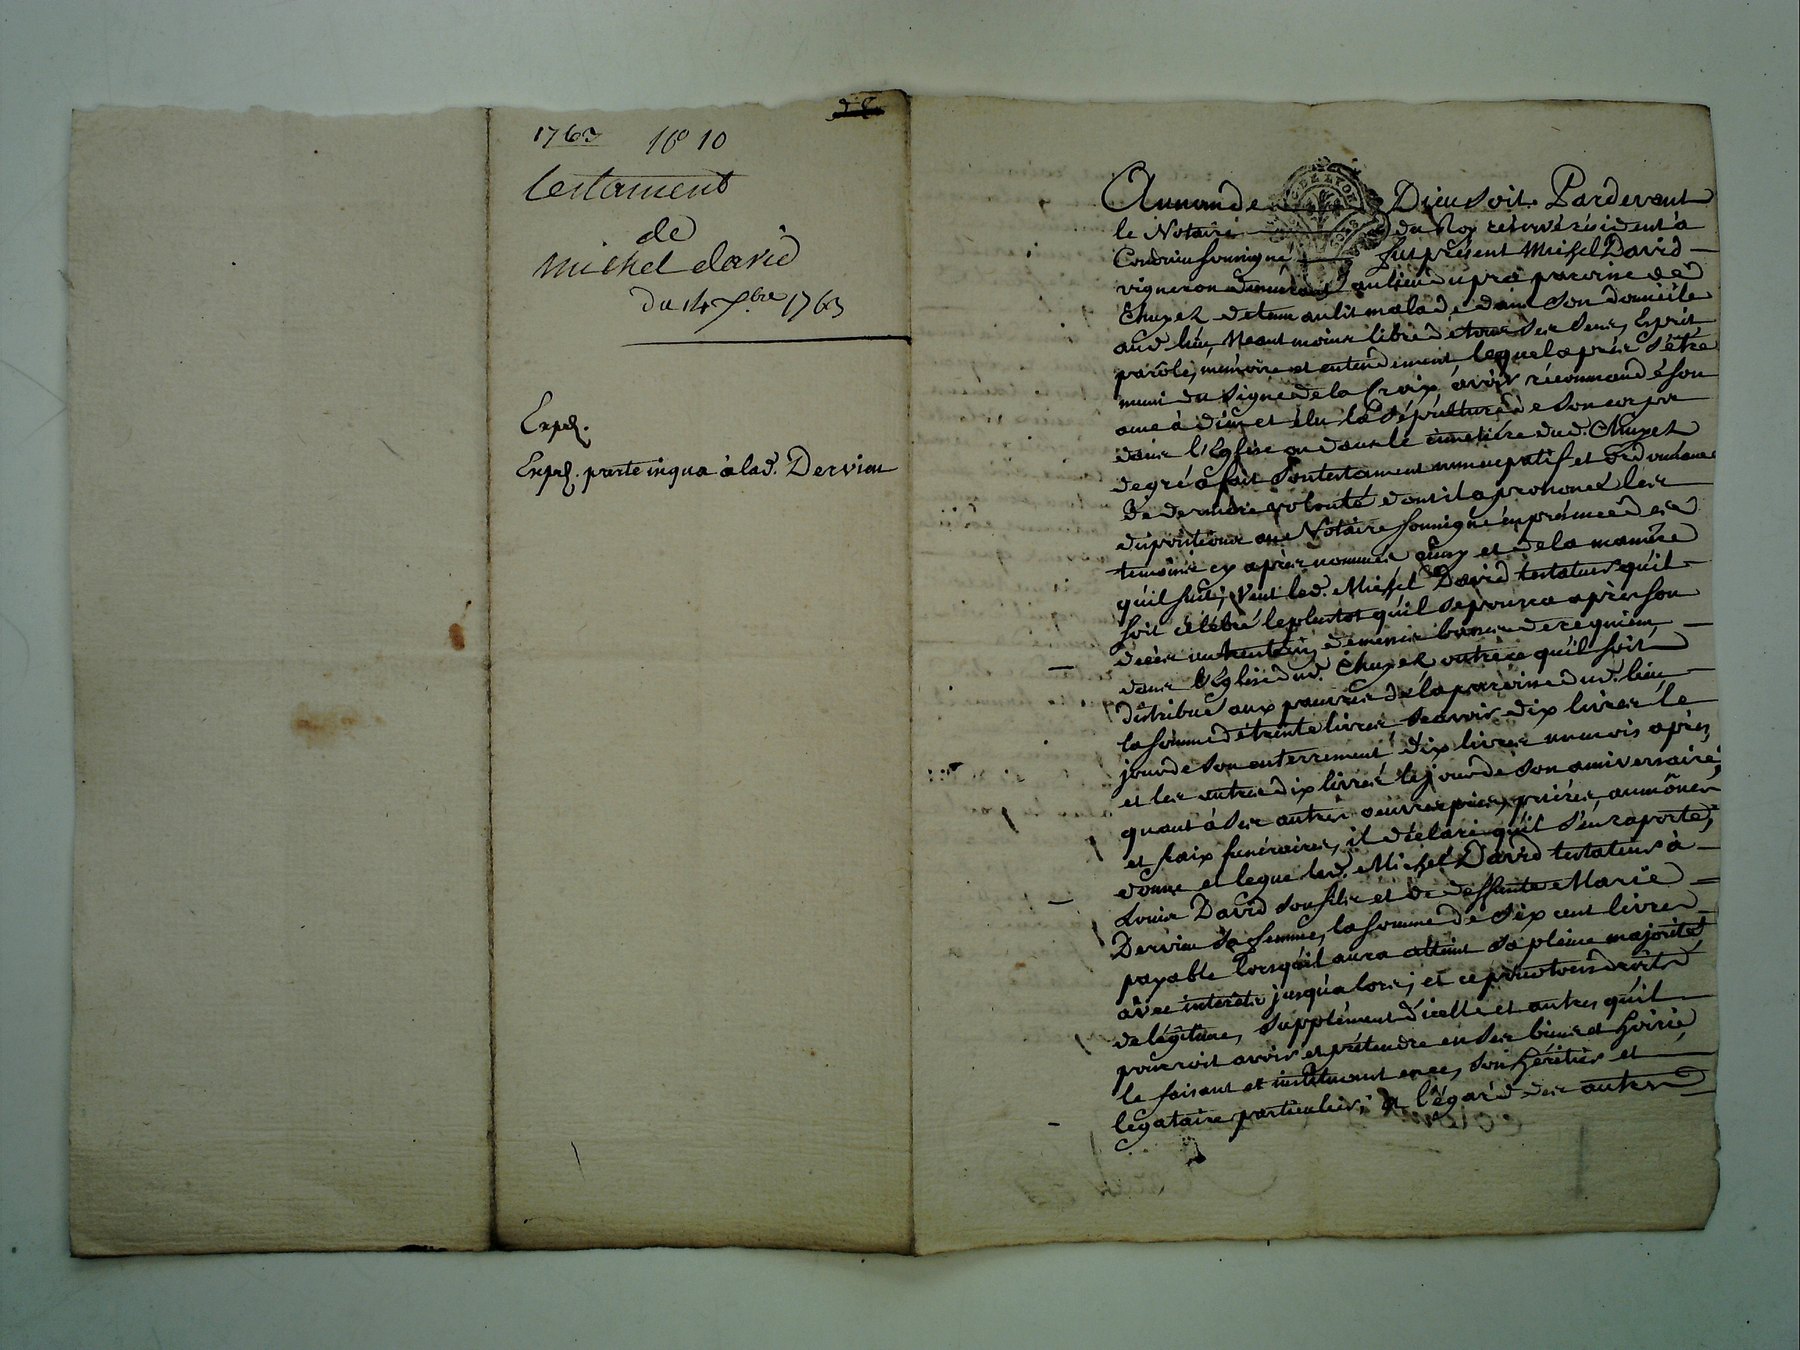 1763 No 10
testament
de
Michel david
du 14 Xbre 1763
Expd.
Expd. parte in qua à lad. Dervieu
Au nom de Dieu soit. Pardevant
le Notaire du Roy réservé résident à
Condrieu soussigné fut présent Michel David
vigneron demeurant au lieu du pra paroisse de
Chuyez detenu au lit malade dans son domicile
aud. lieu, Neantmoins libre de tous ses sens, Esprit
parôle, mémoire et entendement lequel après s'être
muni du signe de la Croix, avoir récommandé son
ame à dieu et élu sa sépulture de son corps
dans l'Eglise ou dans le cimetière dud. Chuyez
de gré a fait son testament nuncupatif et ordonnance
de derniere volonté dont il a prononcé les
dispositions au Notaire soussigné en présence des
temoins cy après nommés ainsy et de la manière
qu'il suit; Veut led. Michel David testateur qu'il
soit célébré le plustot qu'il se pourra après son
décès un trentain de messes basses de requiem
dans l'Eglise dud. Chuyez outre ce qu'il soit
distribué aux pauvres de la paroisse dud. lieu
la somme de trente livres sçavoir dix livres le
jour de son enterrement dix livres un mois après
et les autres dix livres le jour de son anniversaire,
quant à ses autres oeuvres pies, prières, aumônes
et fraix funéraires, il déclare qu'il s'en raporte,
donne et legue led. Michel David testateur à
Louis David son fils et de deffunte Marie
Dervieu sa femme, la somme de six cent livres
payable lorsqu'il aura atteint sa pleine majorité
avec interêts jusqu'alors; et ce pour tous droits
de légitime, supplément d'icelle et autres qu'il
pourroit avoir et prétendre en ses biens et hoirie
le faisant et instituant en ce, son héritier et
légataire particulier; à l'égard des autres